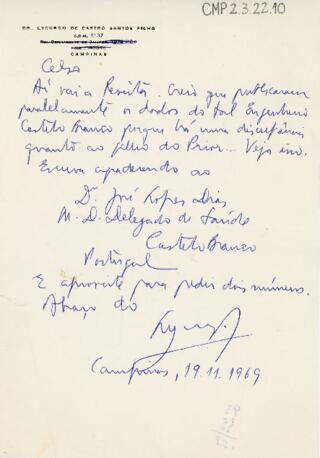 CMP 2.3.22.10
DR. LYCURGO DE CASTRO SANTOS FILHO
CAMPINAS
Celso
Aí vai a Revista. Creio que publicaram
paralelamente os dados do tal Engenheiro
Castelo Branco porque há uma discrepância
quanto ao filho do Prior... Veja isso.
Escreva agradecendo ao
Dr. José Lopes Dias
M. D. Delegado de Saúde
Castelo Branco
Portugal
E aproveite para pedir dois números.
Abraço do
Campinas, 19.11.1969